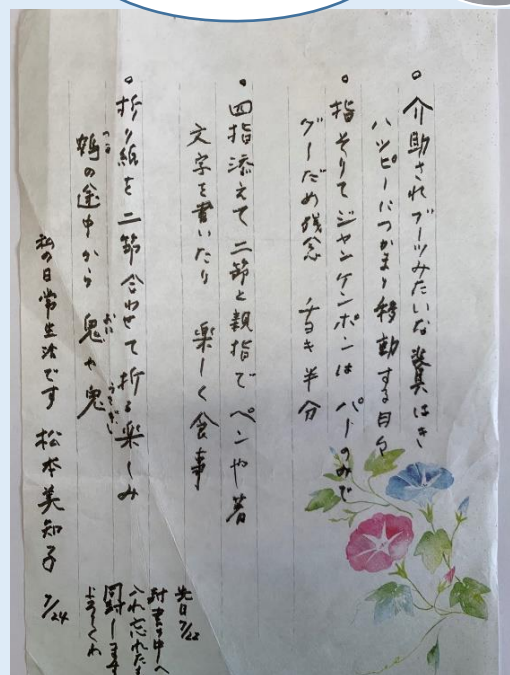 。介助されブーツみたいな装具はき
ハッピーにつかまり移動する日々
。指そりてジャンケンポンはパーのみで
グーだめ残念 チョキ半分
。四指添えて二節と親指でペンや箸
文字を書いたり 楽しく食事
。折り紙を二節合わせて折る楽しみ
鶴の途中から 鬼や鬼
つる
おに
私の日常生活です 松本美知子 7/24
先日7/22
封書の中へ
入れ忘れたま
同封します
よろしくね